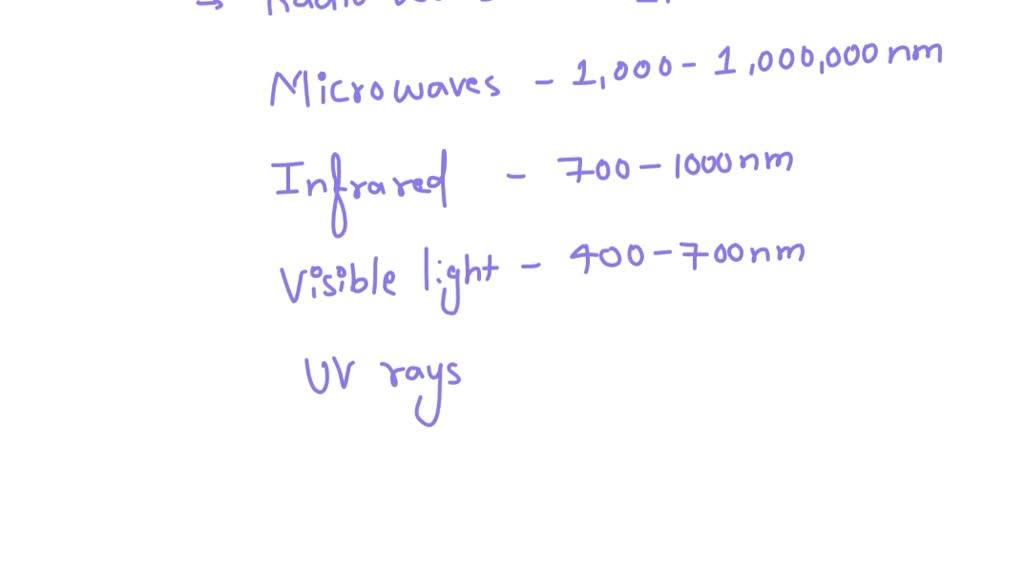 → Radio
Microwaves - 1,000 - 1,000,000 nm
Infrared - 700 - 1000 nm
Visible light - 400 - 700 nm
UV rays